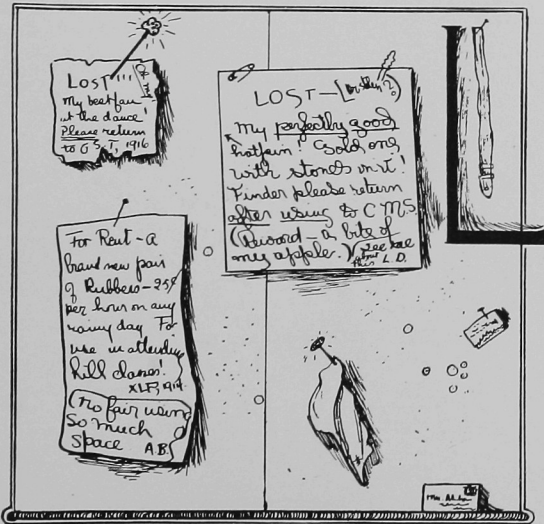 LOST!!!
My best fan
at the dance!
Please return
to G S T, 1916
LOST—
My perfectly good
hatpin! Gold one
with stones in it!
Finder please return
after using to C M S.
(Reward – a bite of
my apple.) See me
about this L. D.
For Rent – a
brand new pair
of Rubbers – 25¢
per hour on any
rainy day. For
use in attending
hill classes!
No fair using
so much
space A.B.